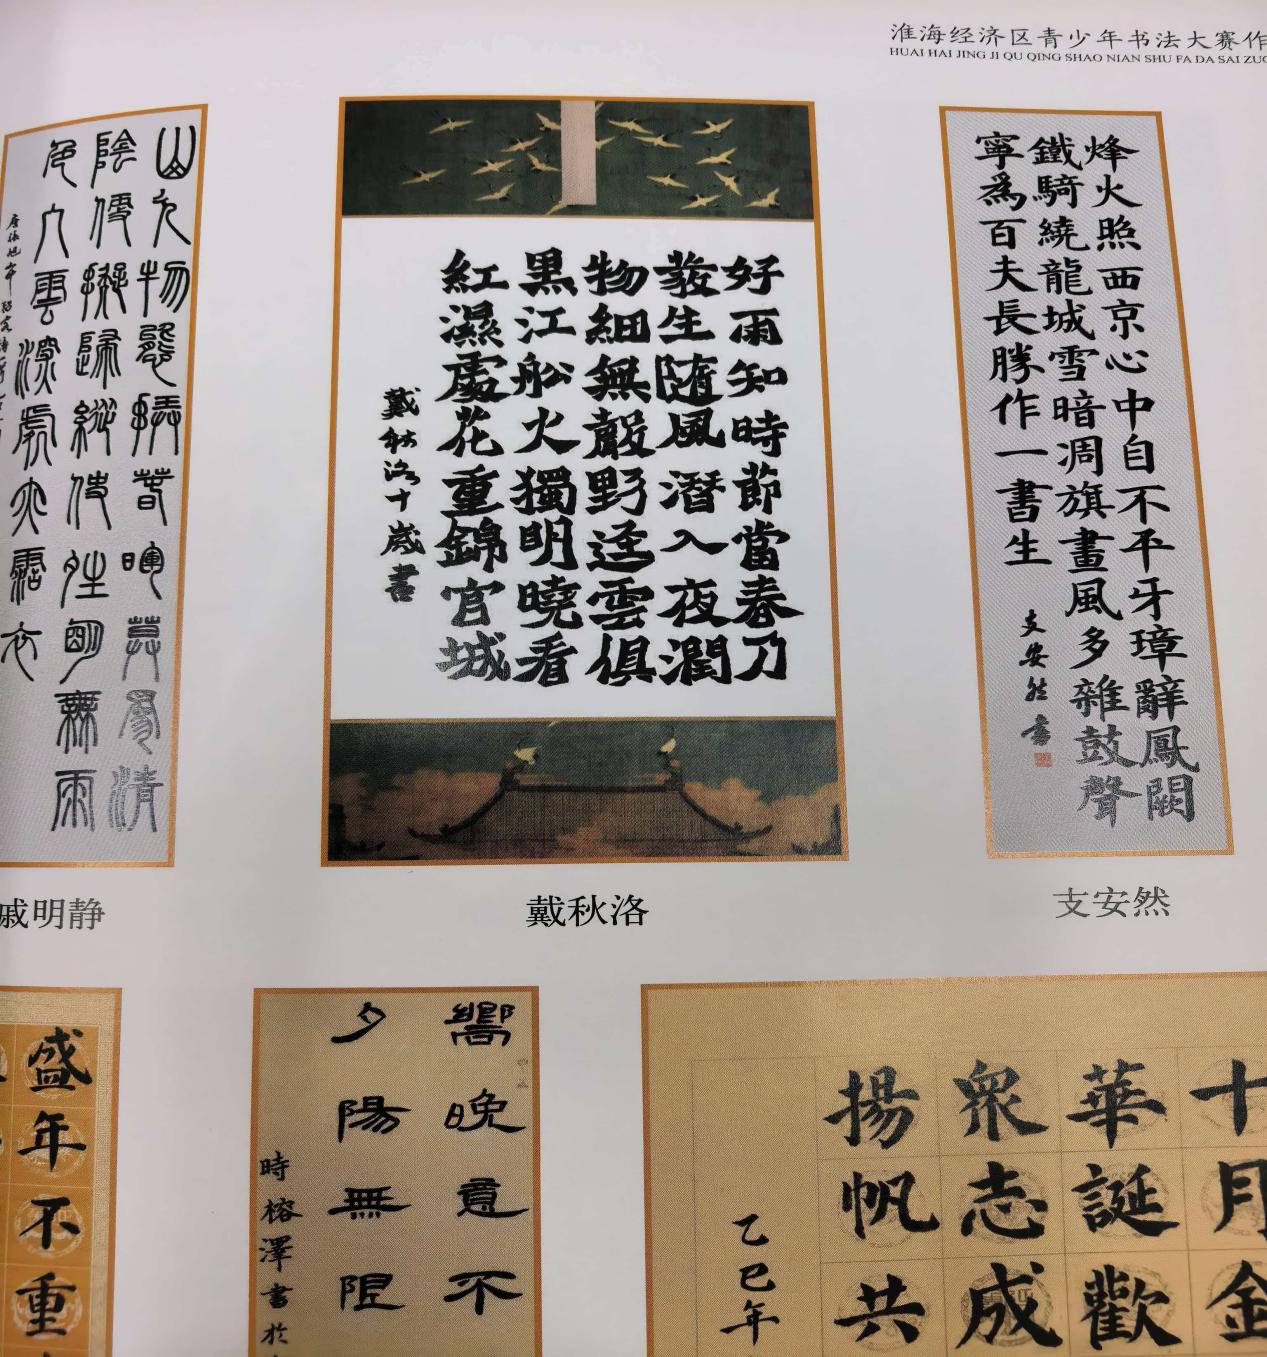 淮海经济区青少年书法大赛作
HUAI HAI JING JI QU QING SHAO NIAN SHU FA DA SAI ZUO
山光物態弄春暉莫爲輕
陰便擬歸縱使晴明無雨
色入雲深處亦霑衣
戚明静
好雨知時節當春乃
發生随風潛入夜潤
物細無聲野迳雲俱
黑江船火獨明曉看
紅濕處花重錦官城
戴秋洛十歲書
戴秋洛
烽火照西京心中自不平牙璋辭鳳闕
鐵騎繞龍城雪暗凋旗畫風多雜鼓聲
寧為百夫長勝作一書生
支安然書
支安然
盛年不重
嚮晚意不
夕陽無限
時榕澤書於
十月金
華誕歡
衆志成
揚帆共
乙巳年